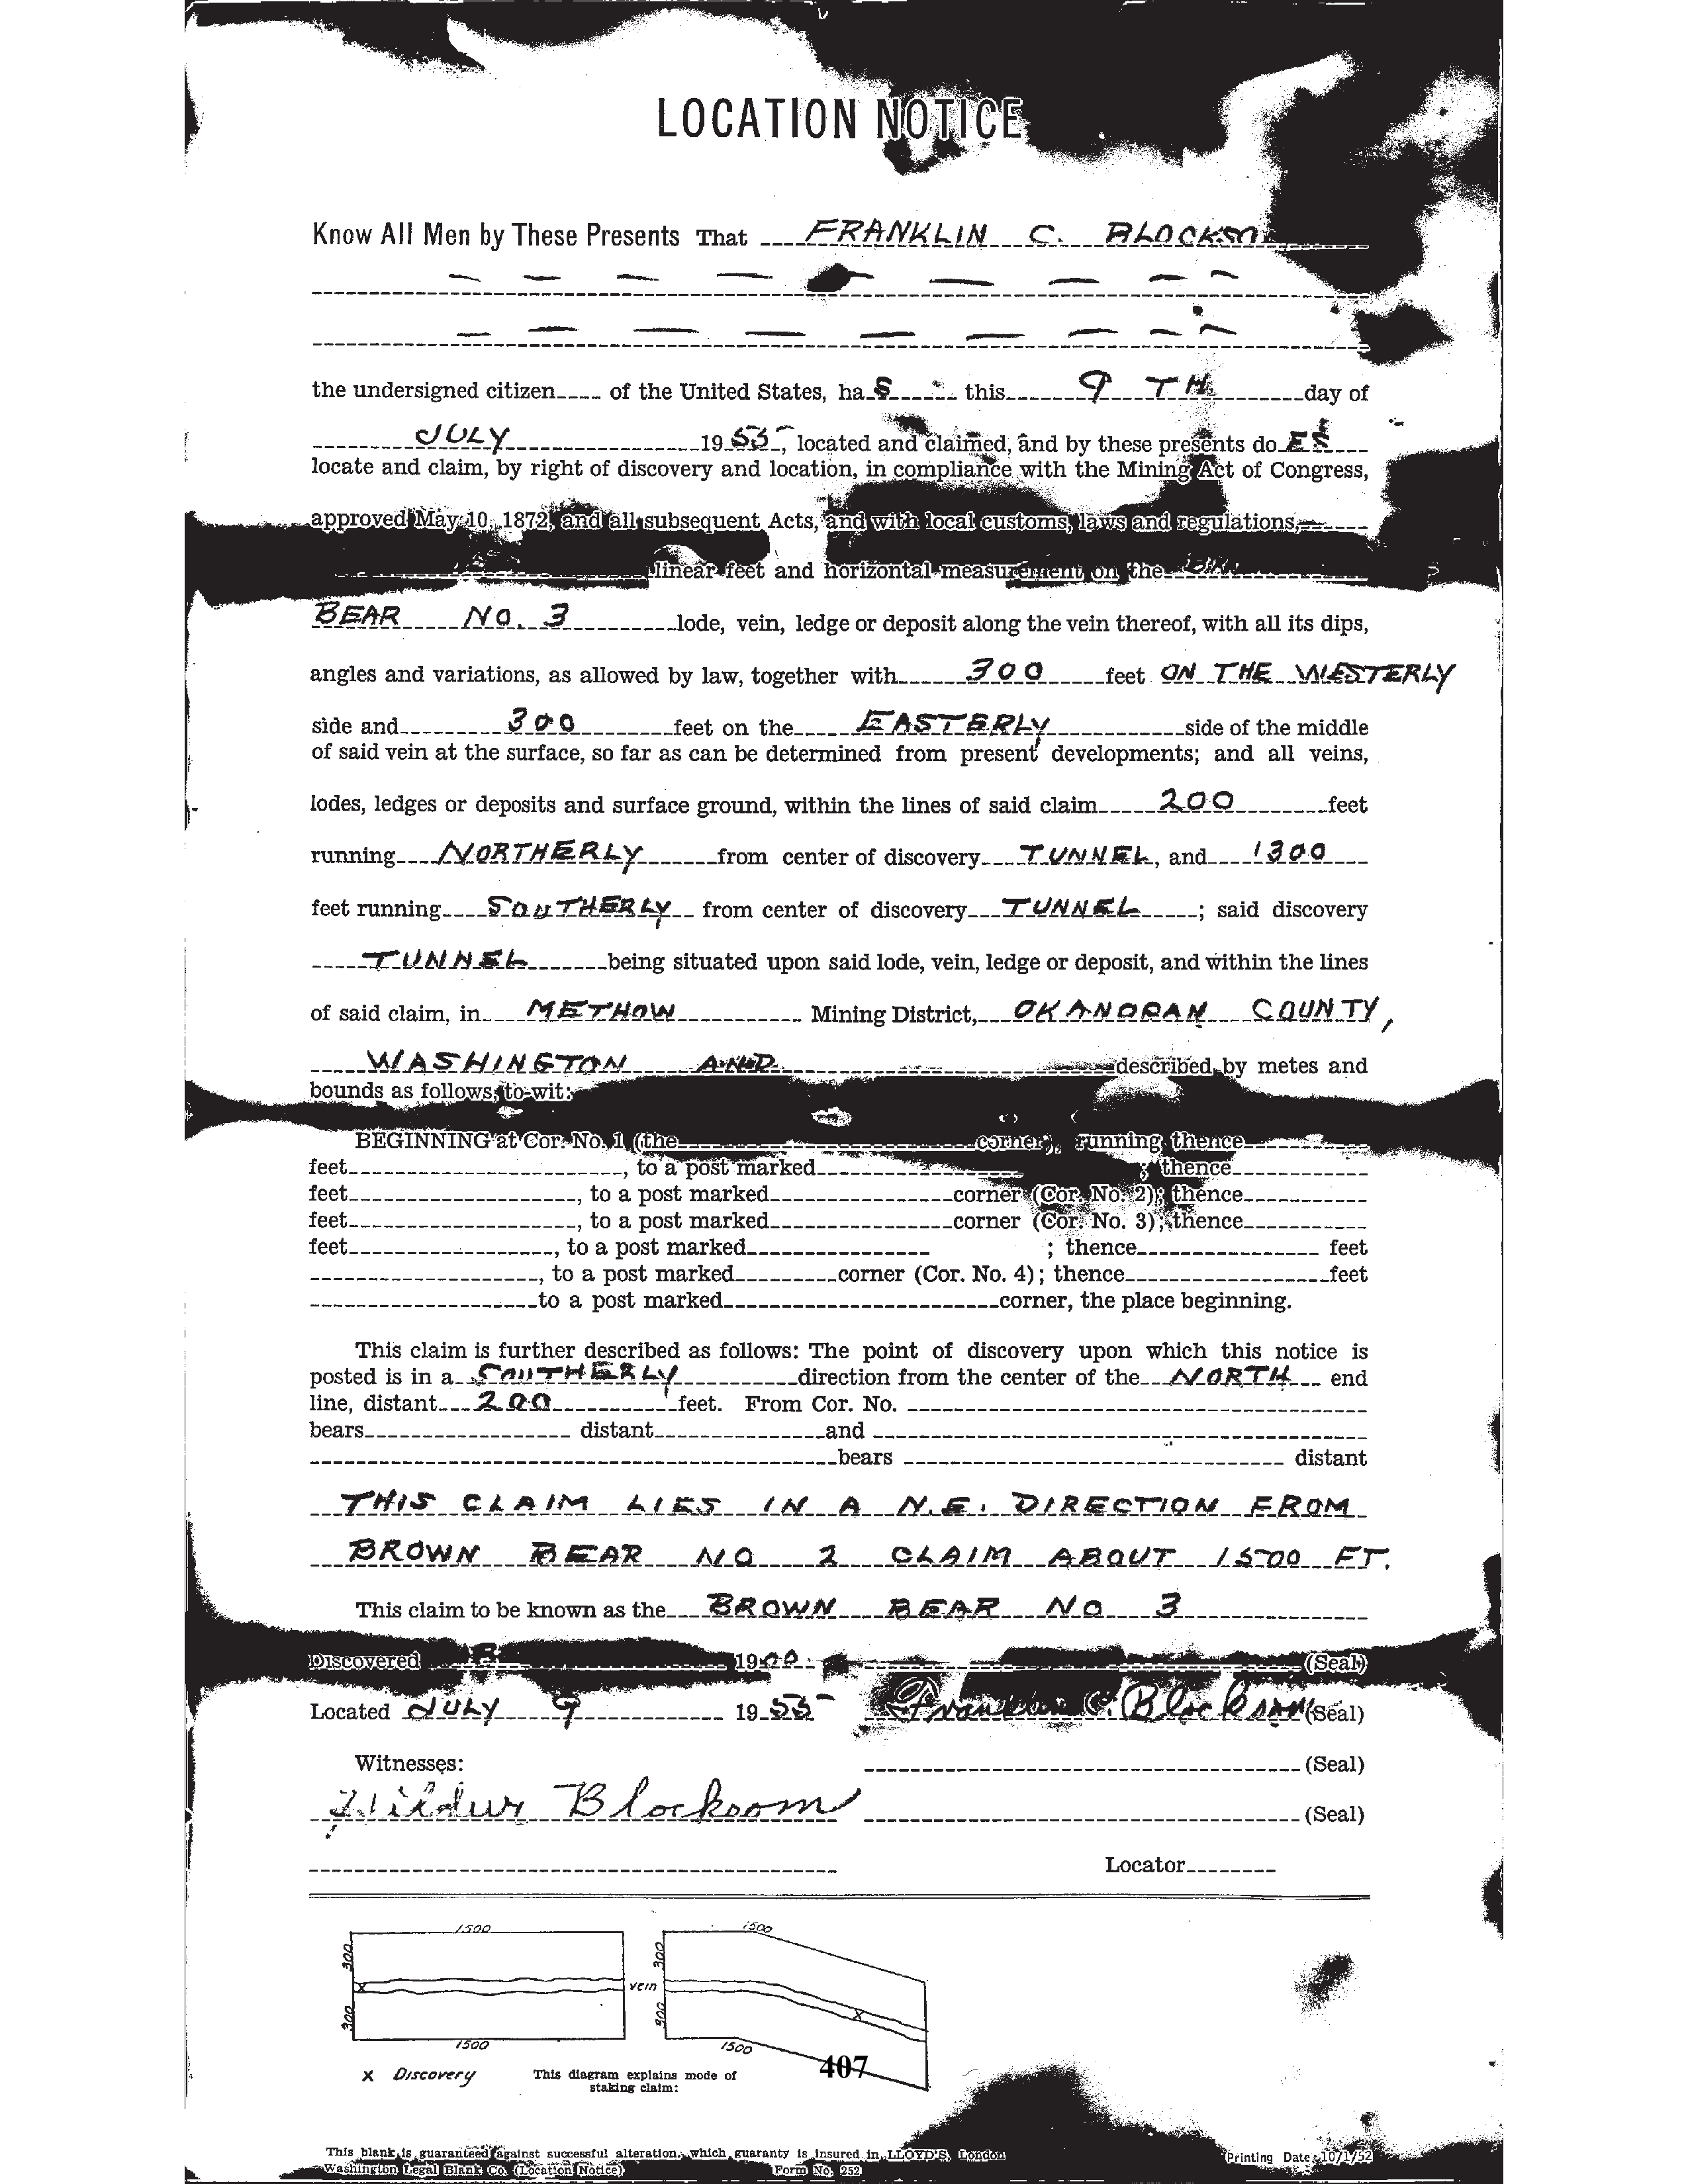 LOCATION NOTICE
Know All Men by These Presents That FRANKLIN C.
the undersigned citizen of the United States, has this 9 TH day of
JULY 1955, located and claimed, and by these presents do ES
locate and claim, by right of discovery and location, in compliance with the Mining Act of Congress,
approved May 10, 1872, and all subsequent Acts, and with local customs, laws and regulations,
linear feet and horizontal measurement on the
BEAR NO. 3 lode, vein, ledge or deposit along the vein thereof, with all its dips,
angles and variations, as allowed by law, together with 300 feet ON THE WESTERLY
side and 300 feet on the EASTERLY side of the middle
of said vein at the surface, so far as can be determined from present developments; and all veins,
lodes, ledges or deposits and surface ground, within the lines of said claim 200 feet
running NORTHERLY from center of discovery TUNNEL, and 1300
feet running SOUTHERLY from center of discovery TUNNEL; said discovery
TUNNEL being situated upon said lode, vein, ledge or deposit, and within the lines
of said claim, in METHOW Mining District, OKANOGAN COUNTY,
WASHINGTON AND described by metes and
bounds as follows, to-wit:
BEGINNING at Cor. No. 1 (the corner), running thence
feet, to a post marked ; thence
feet, to a post marked corner (Cor. No. 2); thence
feet, to a post marked corner (Cor. No. 3); thence
feet, to a post marked ; thence feet
, to a post marked corner (Cor. No. 4); thence feet
to a post marked corner, the place beginning.
This claim is further described as follows: The point of discovery upon which this notice is
posted is in a SOUTHERLY direction from the center of the NORTH end
line, distant 200 feet. From Cor. No.
bears distant and
bears distant
THIS CLAIM LIES IN A N.E. DIRECTION FROM
BROWN BEAR NO 2 CLAIM ABOUT 1500 FT.
This claim to be known as the BROWN BEAR NO 3
Discovered 1900 (Seal)
Located JULY 9 1955 Franklin C. Blocksom (Seal)
Witnesses: (Seal)
Hildur Blocksom (Seal)
Locator
1500 1500
300 300
x vein x
300 300
1500 1500
x Discovery This diagram explains mode of
staking claim:
407
This blank is guaranteed against successful alteration, which guaranty is insured in LLOYD'S, London
Washington Legal Blank Co. (Location Notice) Form No. 252 Printing Date: 10/1/52